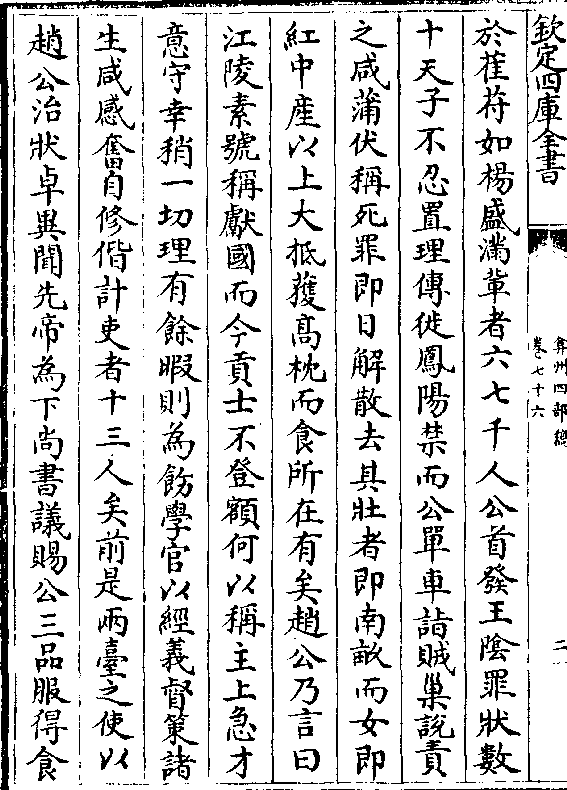 欽定四庫全書
弇州四部稿
卷七十六
二
於萑苻如楊盛滿輩者六七千人公首發王陰罪狀數
十天子不忍置理傳徙鳳陽禁而公單車詣賊巢說責
之咸蒲伏稱死罪即日解散去其壯者即南畝而女即
紅中產以上大抵獲高枕而食所在有矣趙公乃言曰
江陵素號稱獻國而今貢士不登額何以稱主上急才
意守幸稍一切理有餘暇則為飭學官以經義督策諸
生咸感奮自修偕計吏者十三人矣前是兩臺之使以
趙公治狀卓異聞先帝為下尚書議賜公三品服得食